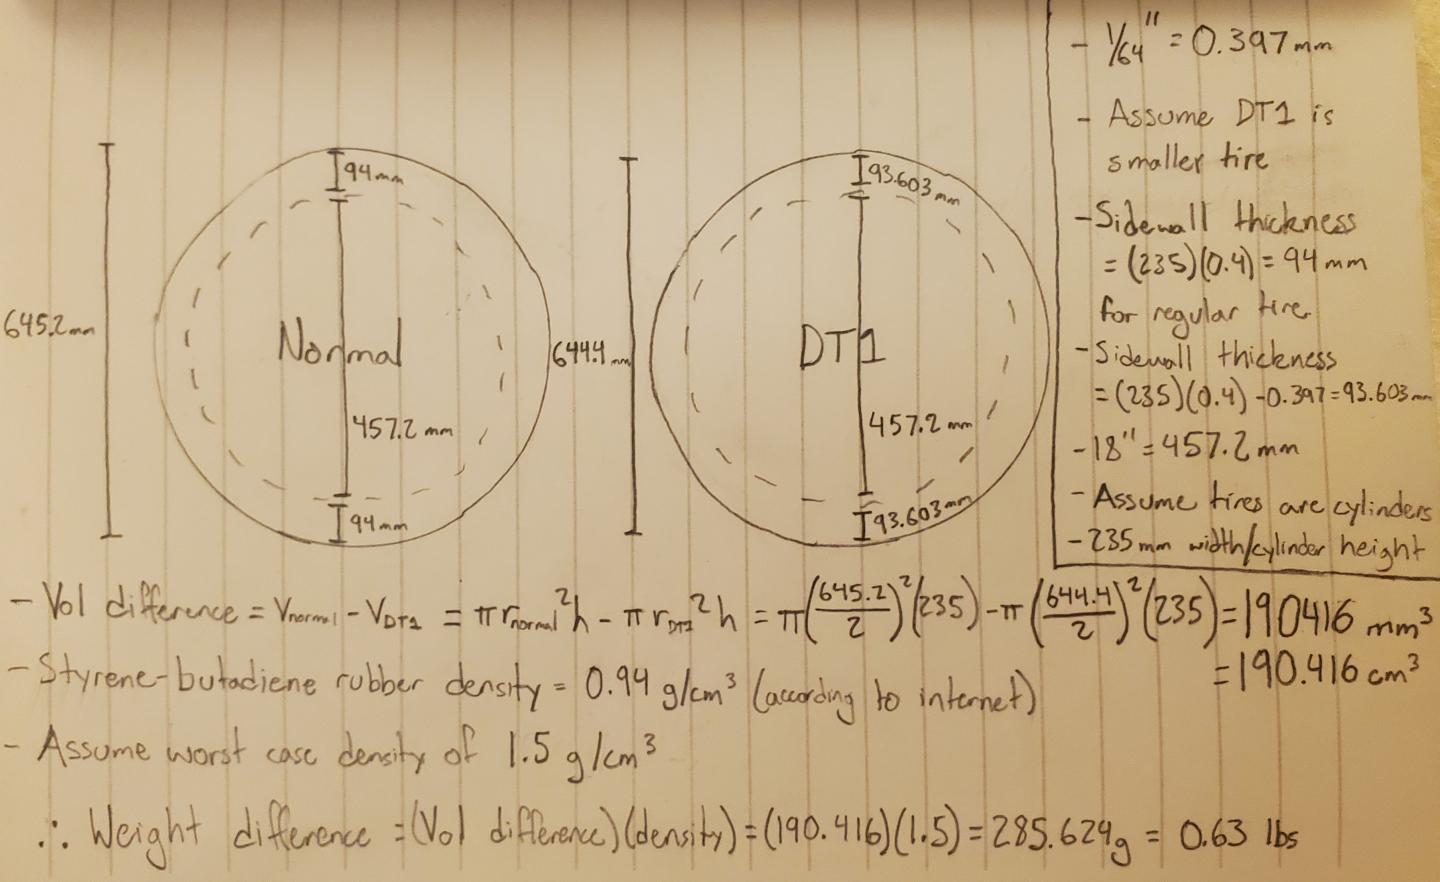 - 1/64" = 0.397mm
- Assume DT1 is
smaller tire
- Sidewall thickness
= (235)(0.4) = 94mm
for regular tire
- Sidewall thickness
= (235)(0.4) - 0.397 = 93.603mm
- 18" = 457.2mm
- Assume tires are cylinders
- 235mm width/cylinder height
94mm
645.2mm
Normal
457.2 mm
94mm
93.603mm
644.4mm
DT1
457.2 mm
93.603mm
- Vol difference = Vnormal - VDT1 = πrnormal²h - πrDT1²h = π(645.2/2)²(235) - π(644.4/2)²(235) = 190416 mm³
= 190.416 cm³
- Styrene-butadiene rubber density = 0.94 g/cm³ (according to internet)
- Assume worst case density of 1.5 g/cm³
∴ Weight difference = (Vol difference)(density) = (190.416)(1.5) = 285.624g = 0.63 lbs